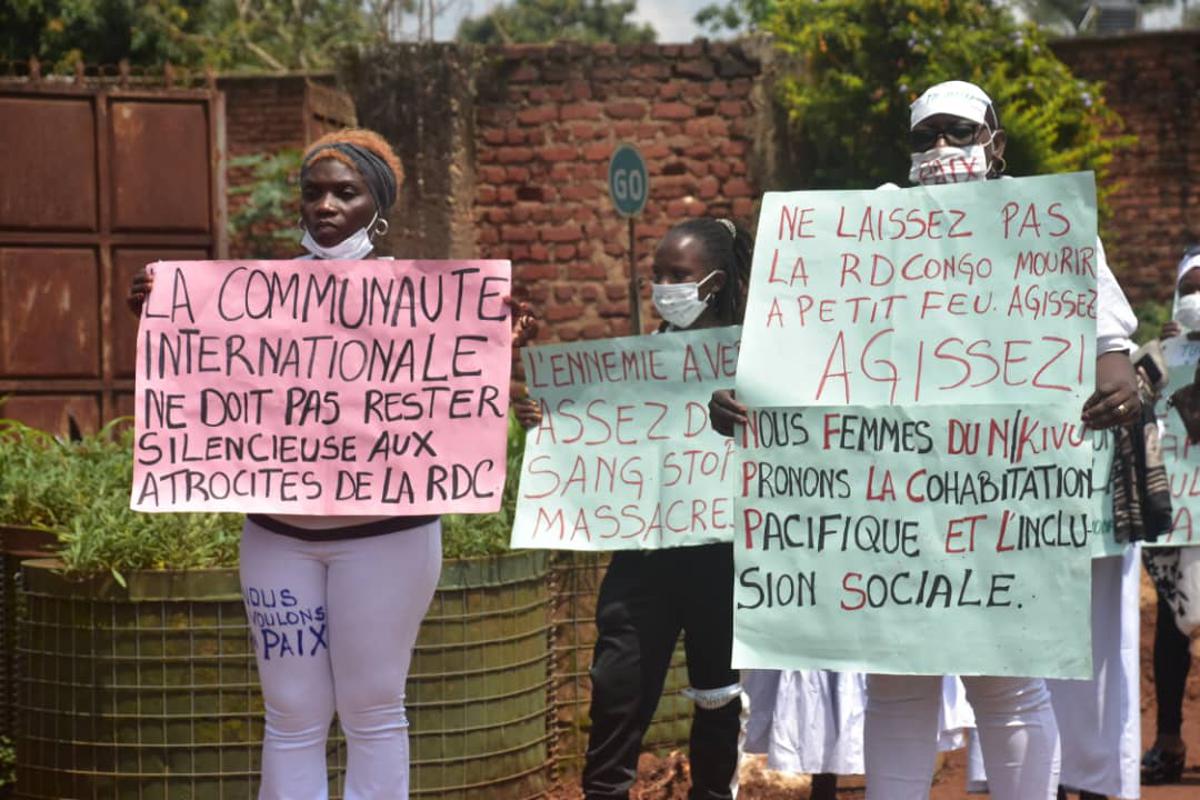 LA COMMUNAUTE
INTERNATIONALE
NE DOIT PAS RESTER
SILENCIEUSE AUX
ATROCITES DE LA RDC.
VOULONS
PAIX
GO
L'ENNEMIE
ASSEZ
SANG STOP
MASSACRE
PAIX
NE LAISSEZ PAS
LA RDCONGO MOURIR
A PETIT FEU. AGISSEZ
AGISSEZ!
NOUS FEMMES DU N/KIVU
PRONONS LA COHABITATION
PACIFIQUE ET L'INCLU-
SION SOCIALE.